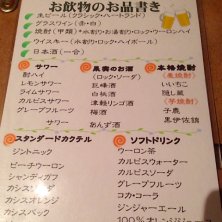 お飲物のお品書き
生ビール（クラシック・ハートランド）
グラスワイン（赤・白）
焼酎（甲類）*水割り・お湯割り・ロック・ウーロンハイ
ウイスキー（水割り・ロック・ハイボール）
日本酒（一合）
サワー
酎ハイ
レモンサワー
ライムサワー
カルピスサワー
グレープフルーツ
サワー
果実のお酒
（ロック・ソーダ）
巨峰酒
白桃酒
津軽リンゴ酒
梅酒
あんず酒
本格焼酎
（麦焼酎）
いいちこ
隠し蔵
（芋焼酎）
子鹿
黒伊佐錦
スタンダードカクテル
ジントニック
ピーチウーロン
シャンディガフ
カシスソーダ
カシスオレンジ
カシスベック
ソフトドリンク
ウーロン茶
カルピスウォーター
カルピスソーダ
グレープフルーツ
コカ・コーラ
ジンジャーエール